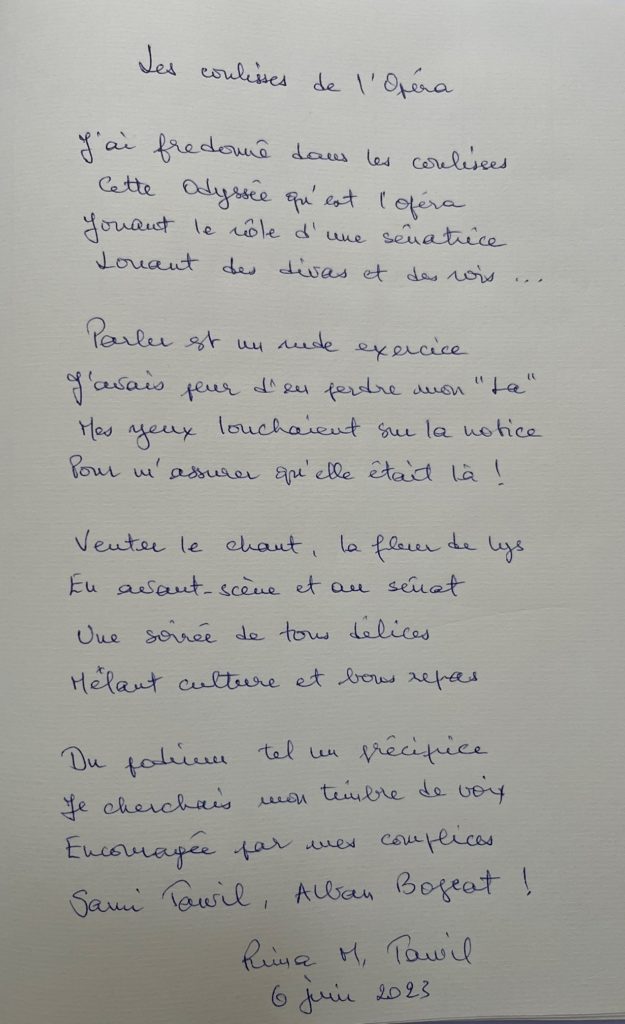 Les coulisses de l'Opéra
J'ai fredonné dans les coulisses
Cette Odyssée qu'est l'opéra
Jouant le rôle d'une sénatrice
Louant des divas et des rois ...
Parler est un rude exercice
J'avais peur d'en perdre mon "La"
Mes yeux louchaient sur la notice
Pour m'assurer qu'elle était là !
Venter le chant, la fleur de lys
En avant-scène et au sénat
Une soirée de tous délices
Mêlant culture et bons repas
Du podium tel un précipice
Je cherchais mon timbre de voix
Encouragée par mes complices
Sami Tawil, Alban Bogeat !
Rima M, Tawil
6 juin 2023